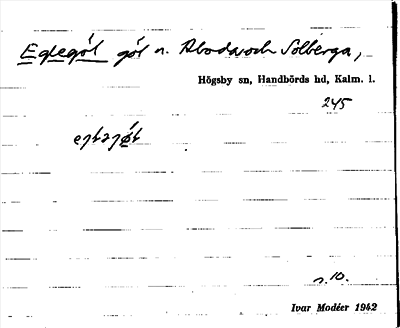 Eglegöl göl n. Aboda och Solberga,
Högsby sn, Handbörds hd, Kalm. l.
245
s. 10.
Ivar Modéer 1942